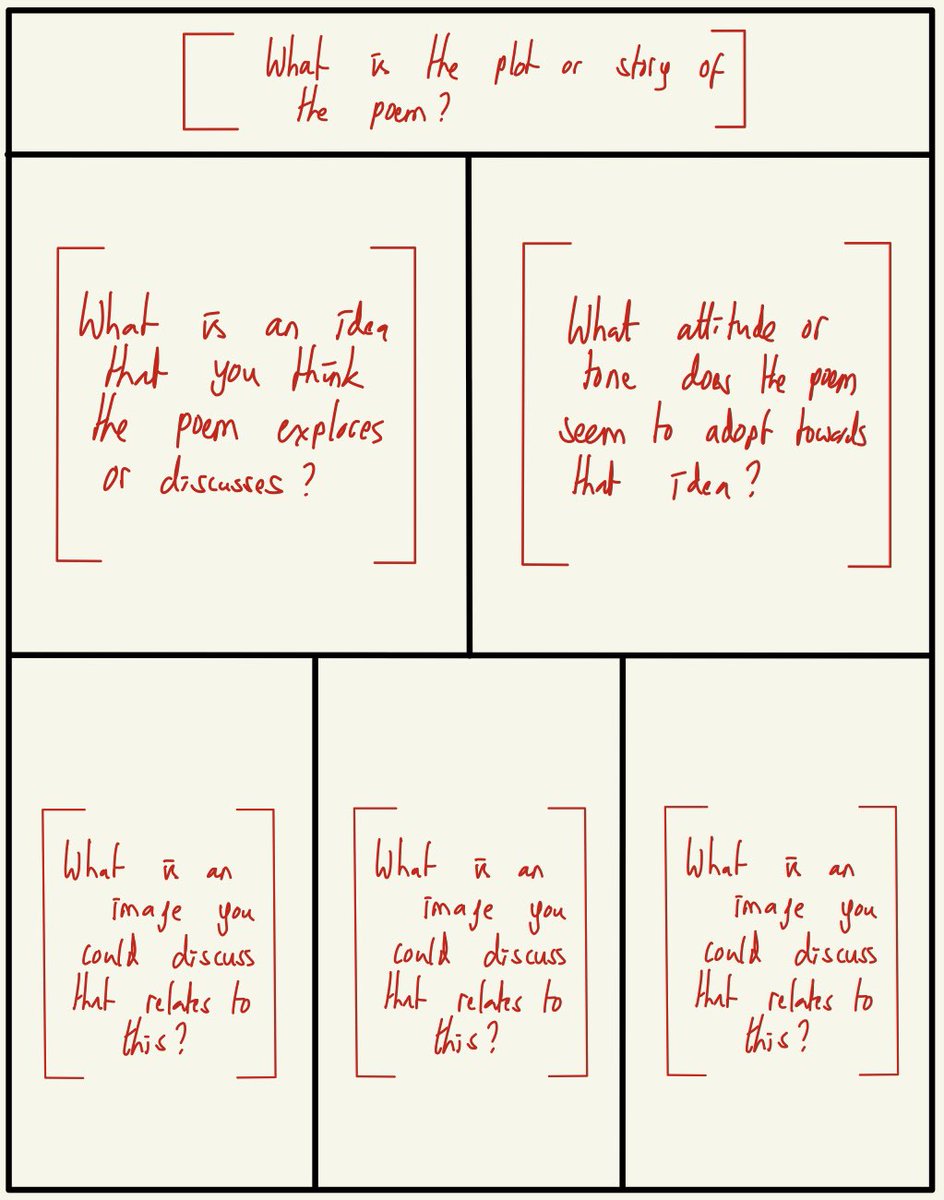 What is the plot or story of
the poem?
What is an idea
that you think
the poem explores
or discusses?
What attitude or
tone does the poem
seem to adopt towards
that idea?
What is an
image you
could discuss
that relates to
this?
What is an
image you
could discuss
that relates to
this?
What is an
image you
could discuss
that relates to
this?